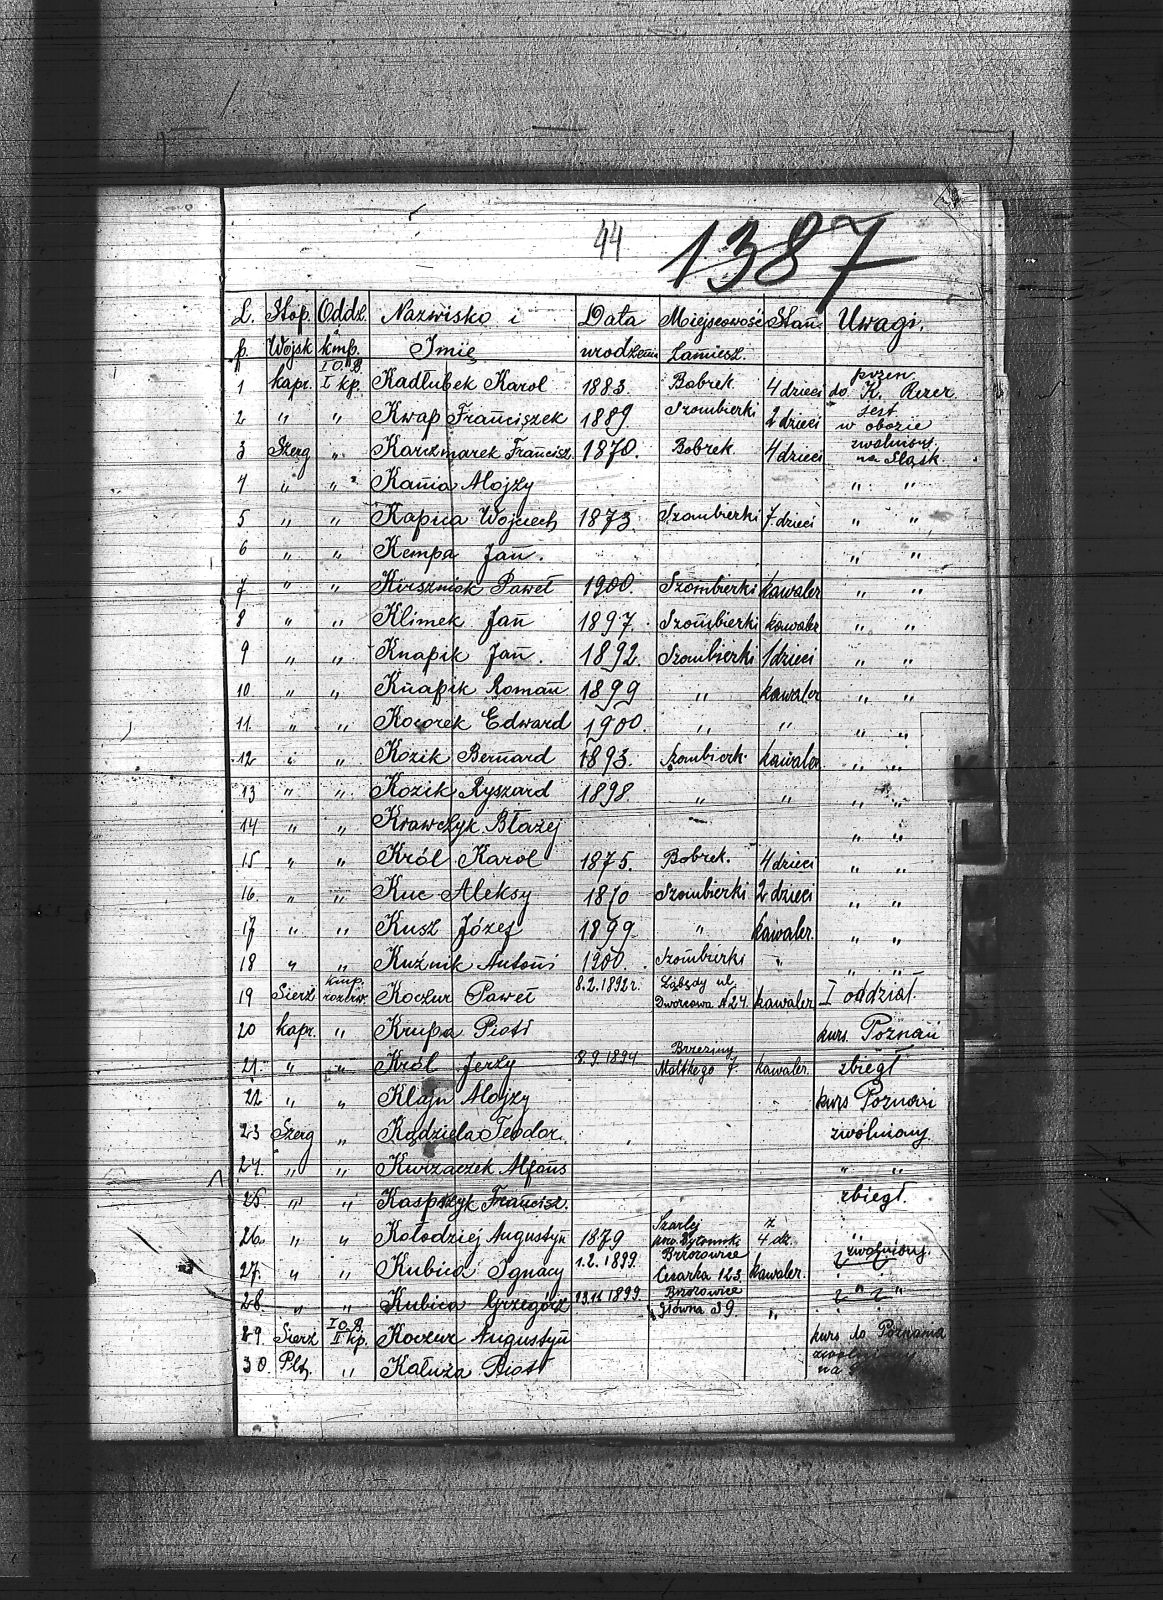 44 1387
L. Stop. Oddz. Nazwisko i Data Miejscowość Stan. Uwagi.
p. Wojsk kmp. Imię urodzenia zamiesz.
1 kapr. I O.B. I kp. Kadłubek Karol 1883 Bobrek 4 dzieci przen. do K. Rezer
2 " " Kwap Franciszek 1889 Szombierki 2 dzieci Jest w obozie
3 Szerg " Karczmarek Francisz 1870. Bobrek 4 dzieci zwolniony na Śląsk
4 " " Kania Alojzy " "
5 " " Kapica Wojciech 1873. Szombierki 7 dzieci " "
6 " " Kempa Jan. " "
7 " " Kirszniok Paweł 1900. Szombierki kawaler " "
8 " " Klimek Jan 1897. Szombierki kawaler " "
9 " " Knapik Jan. 1892 Szombierki 1 dzieci " "
10. " " Knapik Roman 1899 " kawaler " "
11. " " Kocorek Edward 1900. " " " "
12 " " Kozik Bernard 1893. Szombierk. kawaler " "
13 " " Kozik Ryszard 1898. " " " "
14 " " Krawczyk Błażej " "
15 " " Król Karol 1875. Bobrek. 4 dzieci " "
16. " " Kuc Aleksy Szombierki 2 dzieci " "
17 " " Kusz Józef 1899 " kawaler. " "
18 " " Kuźnik Antoni 1900. Szombierki " " "
19 Sierż kmp. rezerw. Koczur Paweł 8.2.1892 r. Łabędy ul. Dworcowa № 24. kawaler I oddział.
20 kapr. " Krupa Piotr kurs. Poznań
21. " " Król Jerzy 8.9.1894 Brzeziny kawaler. zbiegł
22 " " Klajn Alojzy kurs Poznań
23 Szerg " Kądziela Teodor. zwolniony.
24. " " Kurzaczek Alfons " "
25. " " Kasprzyk Francisz. zbiegł.
26. " " Kołodziej Augustyn 1879 Szarlej 4 dz. "
27. " " Kubica Ignacy 1.2.1899. Brzozowice Cesarka 123. kawaler. zwolniony.
28. " " Kubica Grzegórz 13.11.1899. Brzozowice Główna 39. " " "
29. Sierż I O.B. II kp. Koczur Augustyn kurs do Poznania
30. Plt. " Kałuża Piotr zwolniony na
K
L